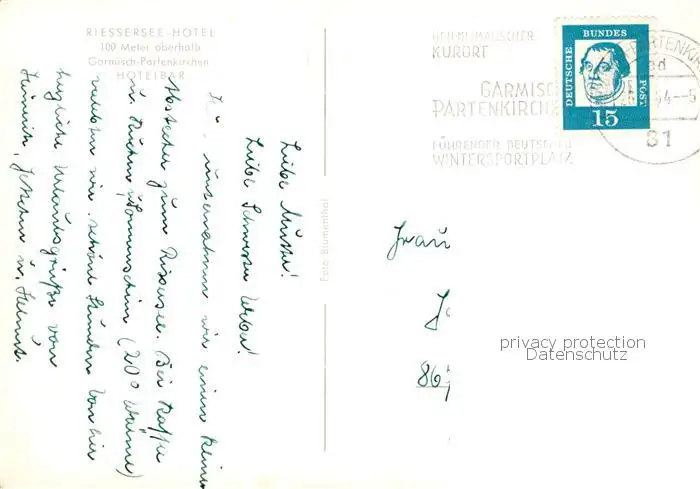 RIESSERSEE-HOTEL
100 Meter oberhalb
Garmisch-Partenkirchen
HOTELBAR
Liebe Mutter!
Liebe Schwester
unternahmen wir einen kleinen
Abstecher zum Riessersee. Bei Kaffee
u. Kuchen u. Sonnenschein (20° Wärme)
verlebten wir schöne Stunden. Von hier
herzliche Urlaubsgrüße von
Heinrich, u. Helmut.
Foto Blumenthal
HEILKLIMATISCHER
KURORT
GARMISCH
PARTENKIRCHE
FÜHRENDER DEUTSCHER
WINTERSPORTPLATZ
DEUTSCHE BUNDESPOST
15
PARTENKIR
64--5
81
Frau
86
privacy protection
Datenschutz